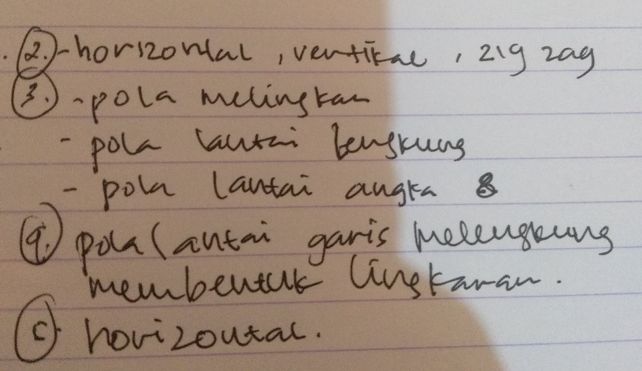 2. - horizontal, vertikal, zig zag
3. - pola melingkar
- pola lantai lengkung
- pola lantai angka 8
4. pola lantai garis melengkung
membentuk lingkaran.
5. horizontal.